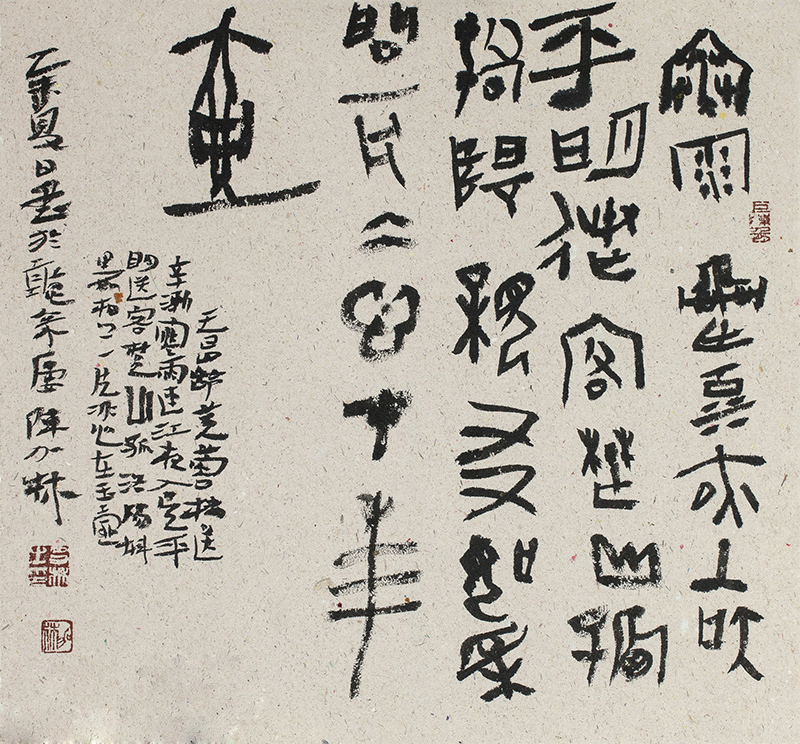 寒雨連江夜入吳
平明送客楚山孤
洛陽親友如相
問一片冰心在玉
壺
王昌齡芙蓉樓送
辛漸寒雨連江夜入吳平
明送客楚山孤洛陽親
友如相問一片冰心在玉壺
夏日書於聽